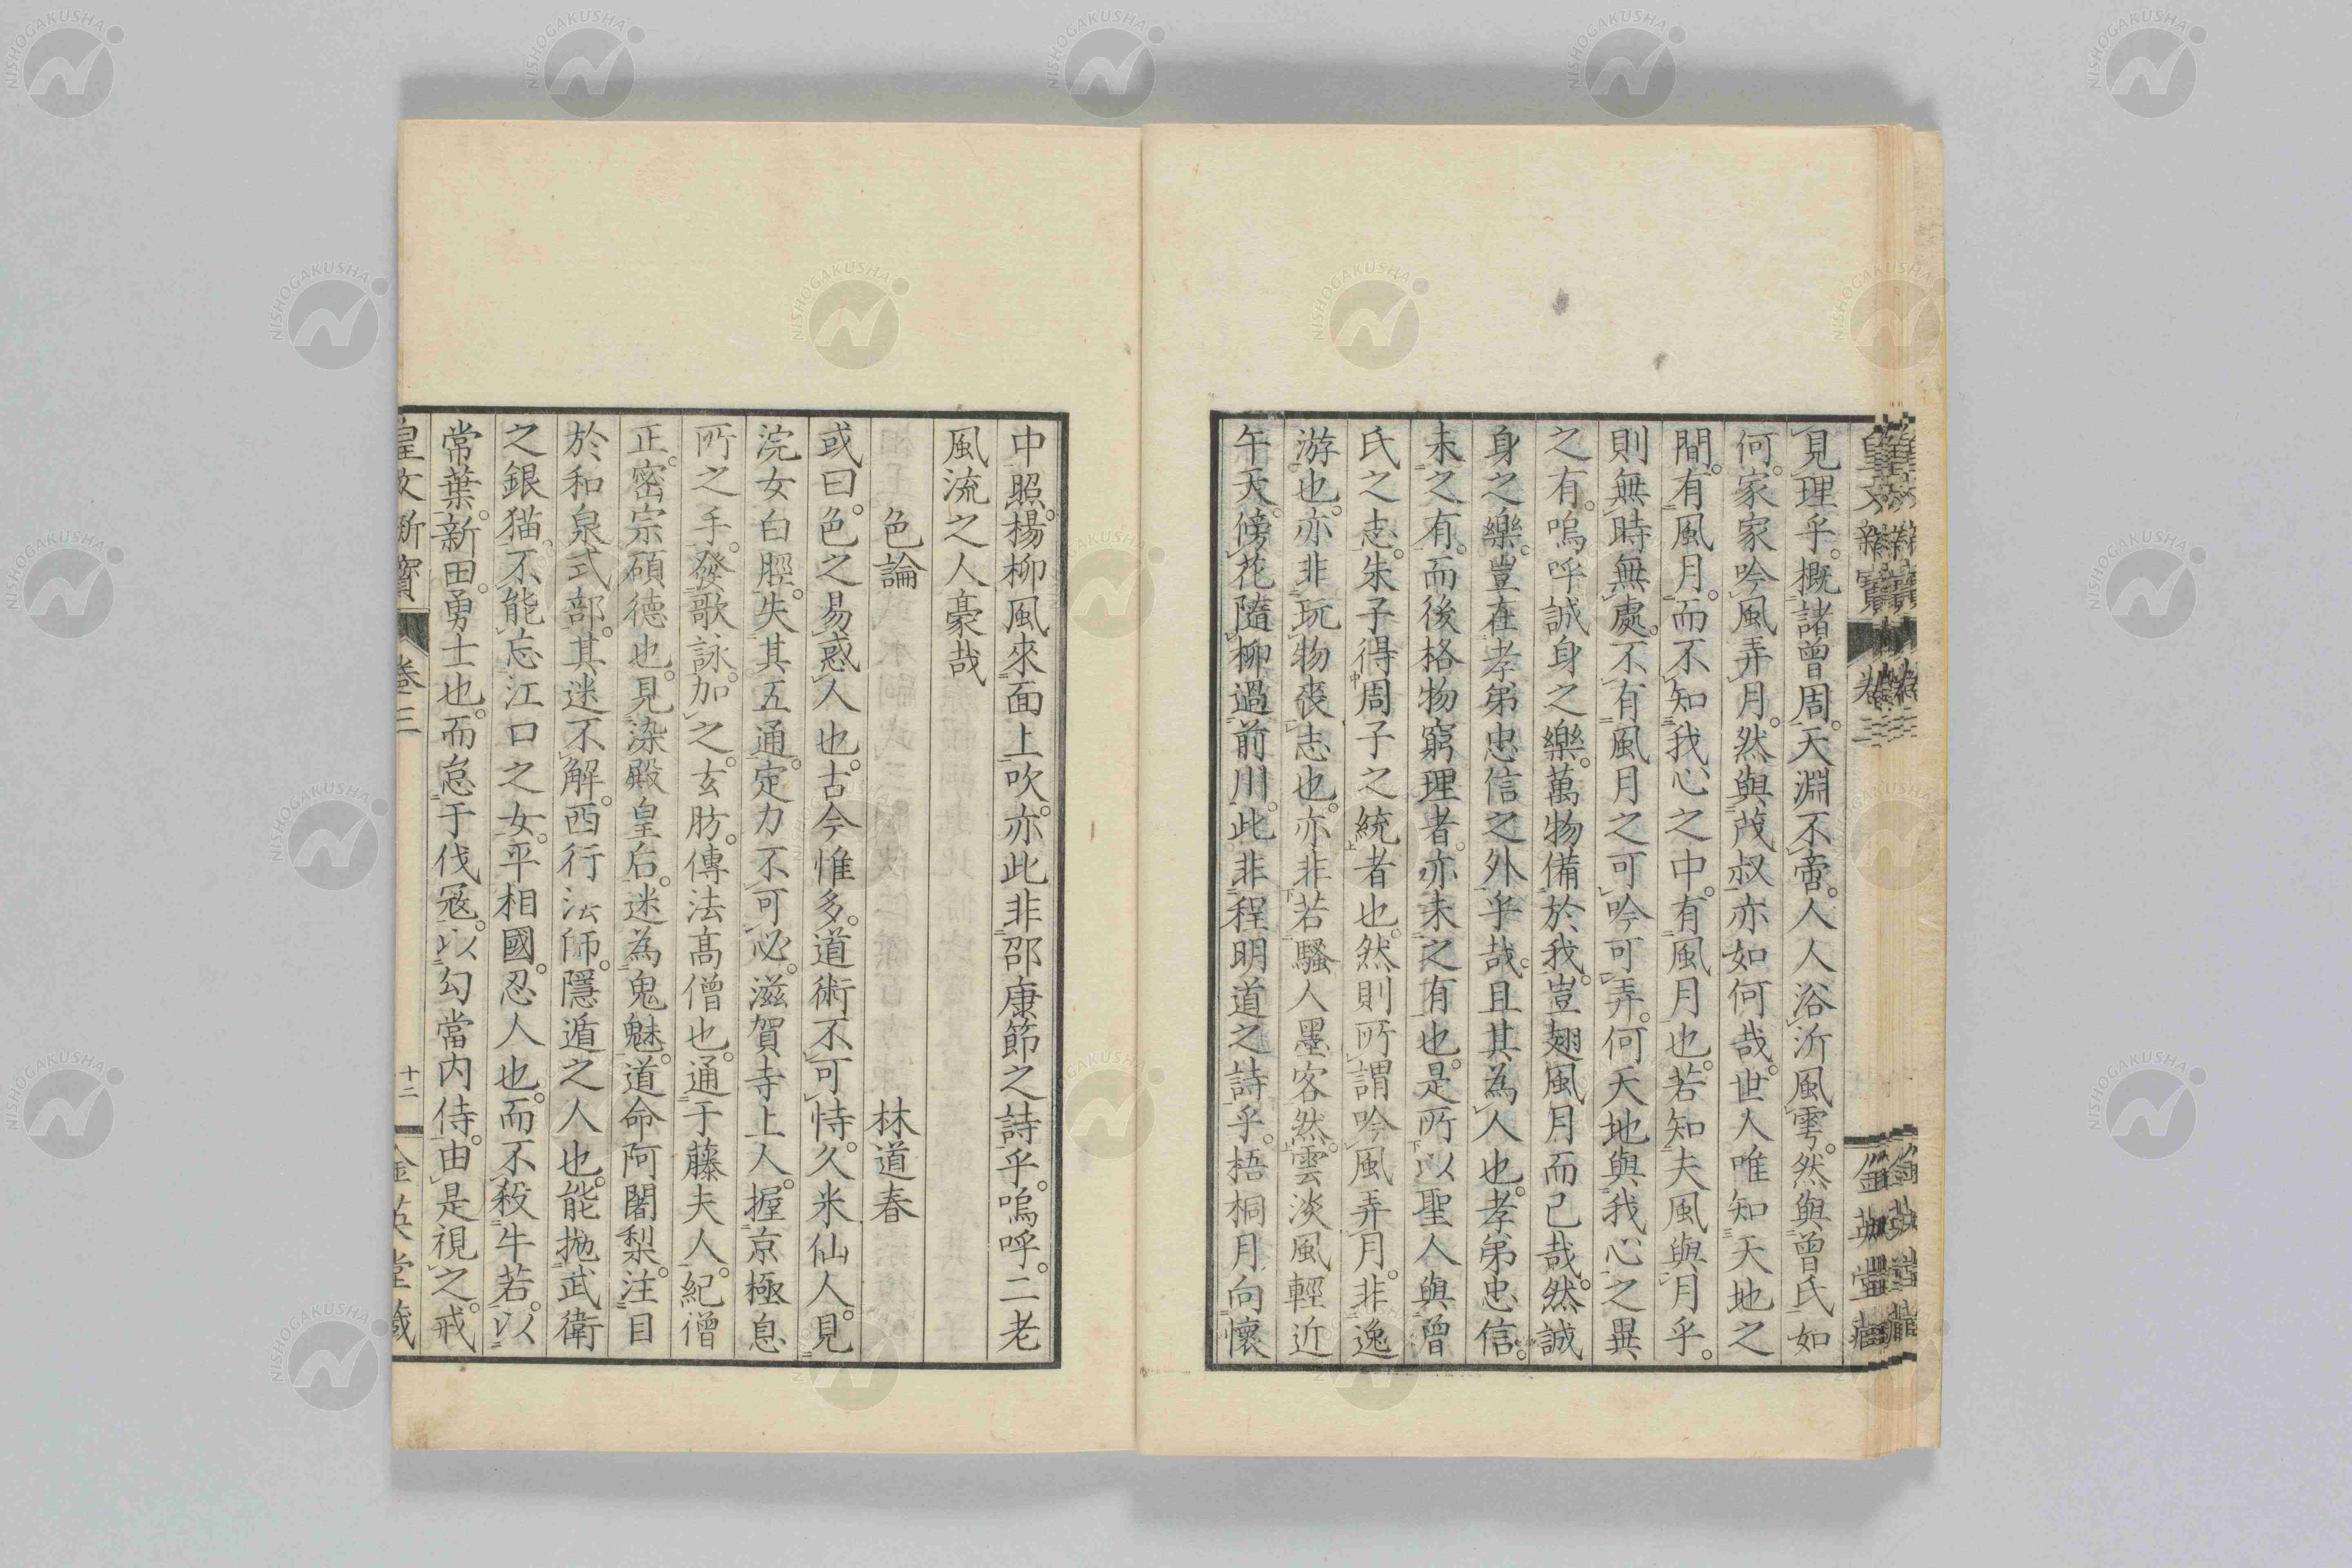 見理乎。概諸曾周。天淵不啻。人人浴沂風雩。然與曾氏如
何。家家吟風弄月。然與茂叔亦如何哉。世人唯知天地之
間。有風月。而不知我心之中。有風月也。若知夫風與月乎。
則無時無處。不有風月之可吟可弄。何天地與我心之異
之有。嗚呼誠身之樂。萬物備於我。豈翅風月而已哉。然誠
身之樂。豈在孝弟忠信之外乎哉。且其為人也。孝弟忠信。
未之有。而後格物窮理者。亦未之有也。是所以聖人與曾
氏之志。朱子得周子之統者也。然則所謂吟風弄月。非逸
游也。亦非玩物喪志也。亦非若騷人墨客然。雲淡風輕近
午天。傍花隨柳過前川。此非程明道之詩乎。梧桐月向懷
中照。楊柳風來面上吹。亦此非邵康節之詩乎。嗚呼。二老
風流之人豪哉
色論 林道春
或曰。色之易惑人也。古今惟多。道術不可恃。久米仙人。見
浣女白脛。失其五通。定力不可必。滋賀寺上人。握京極息
所之手。發歌詠。加之。玄肪。傳法高僧也。通于藤夫人。紀僧
正。密宗碩德也。見染殿皇后。迷為鬼魅。道命阿闍梨。注目
於和泉式部。其迷不解。西行法師。隱遁之人也。能拋武衛
之銀猫。不能忘江口之女。平相國。忍人也。而不殺牛若。以
常葉。新田。勇士也。而怠于伐寇。以勾當內侍。由是視之。戒
皇文新寶 卷三 十二 金英堂藏
NISHOGAKUSHA